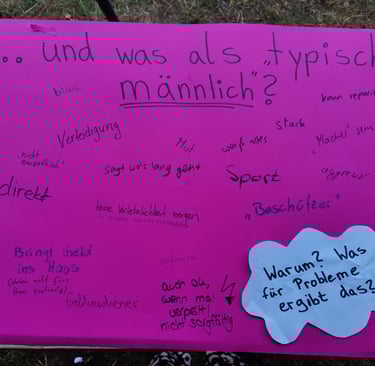 ... und was als „typisch
männlich"?
blau
kann repari
Verteidigung
Mut
stark
weiß alles
"Macher" sein
"nicht
empathisch"
sagt wo's lang geht
Sport
aggressiv
direkt
keine Verletzlichkeit zeigen
„Beschützer"
Bringt Geld
ins Haus
Geldverdiener
auch ok,
wenn mal
verpeilt/
nicht sorgfältig
Warum? Was
für Probleme
ergibt das?